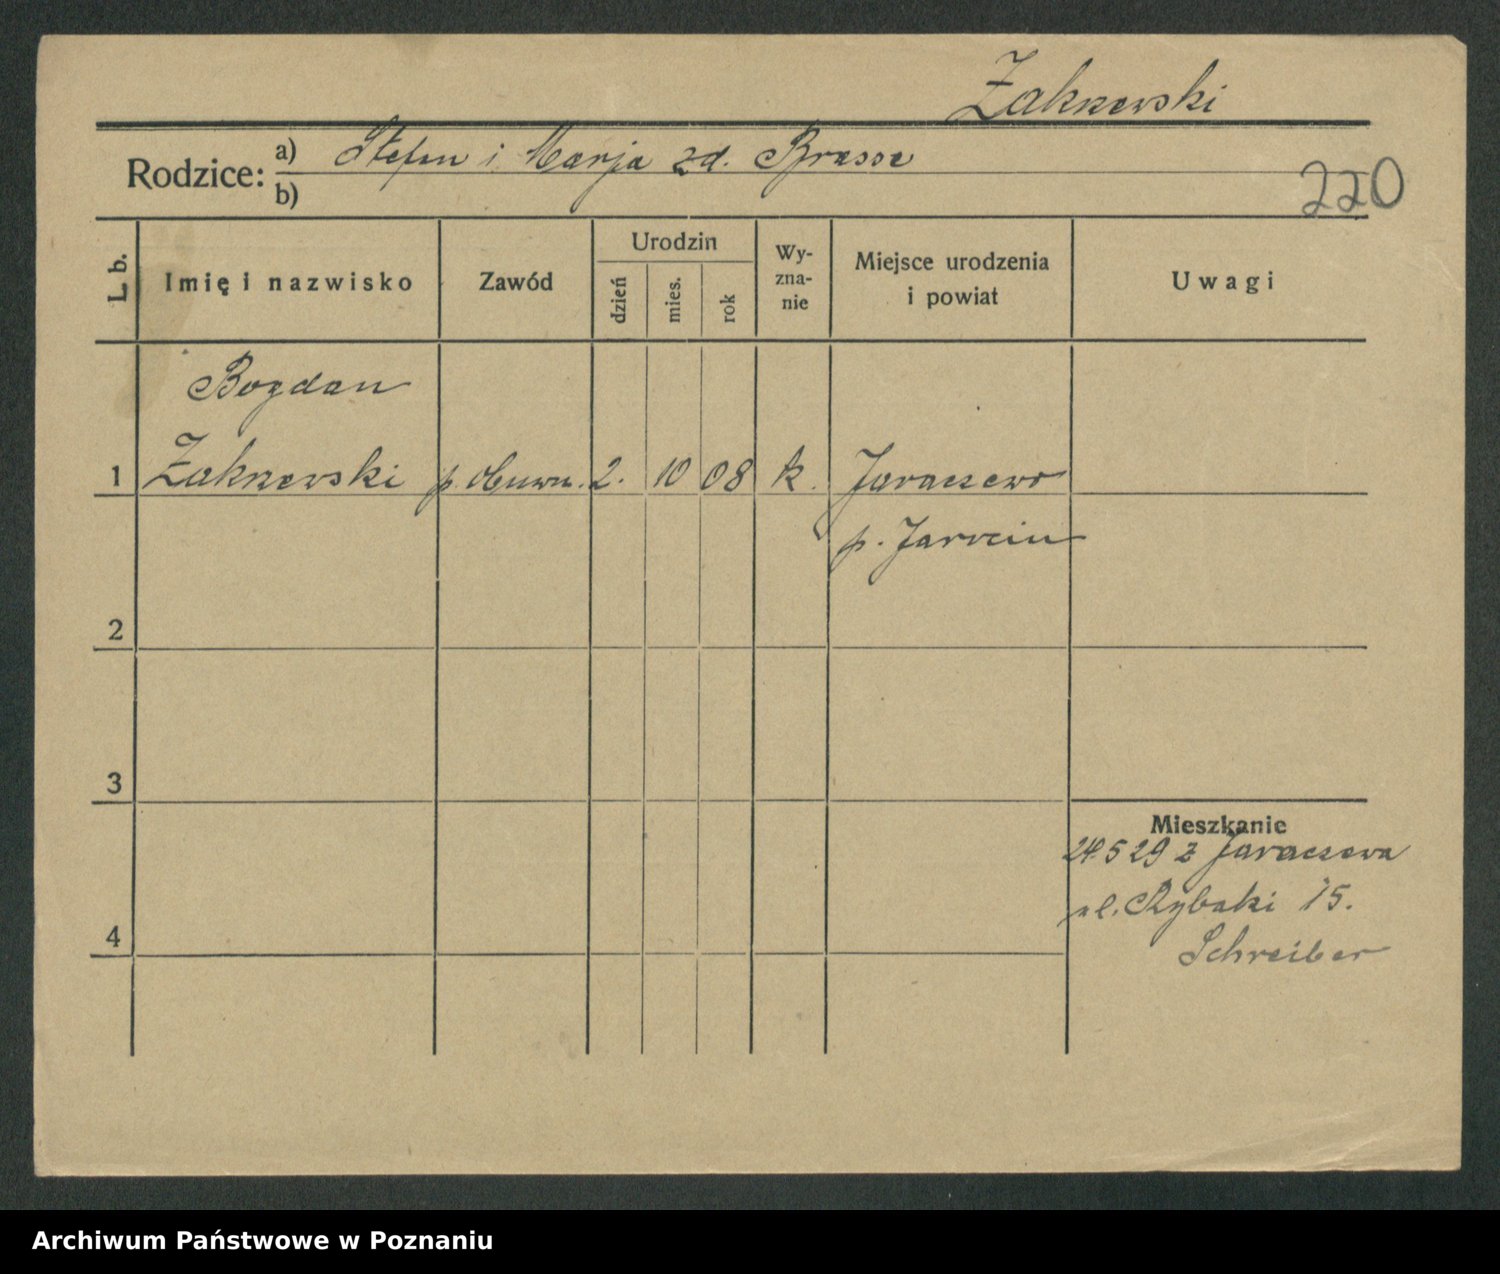 Zakrzewski
Rodzice: a) Stefan i Marja zd. Brasse
b)
220
L. b.
Imię i nazwisko
Zawód
Urodzin
dzień
mies.
rok
Wy-
zna-
nie
Miejsce urodzenia
i powiat
Uwagi
Bogdan
1 Zakrzewski p. obuwn. 2. 10 08 k. Jaraczewo
p. Jarocin
2
3
Mieszkanie
24.5 29 z Jaraczewa
ul. Rybaki 15.
4
Schreiber
Archiwum Państwowe w Poznaniu